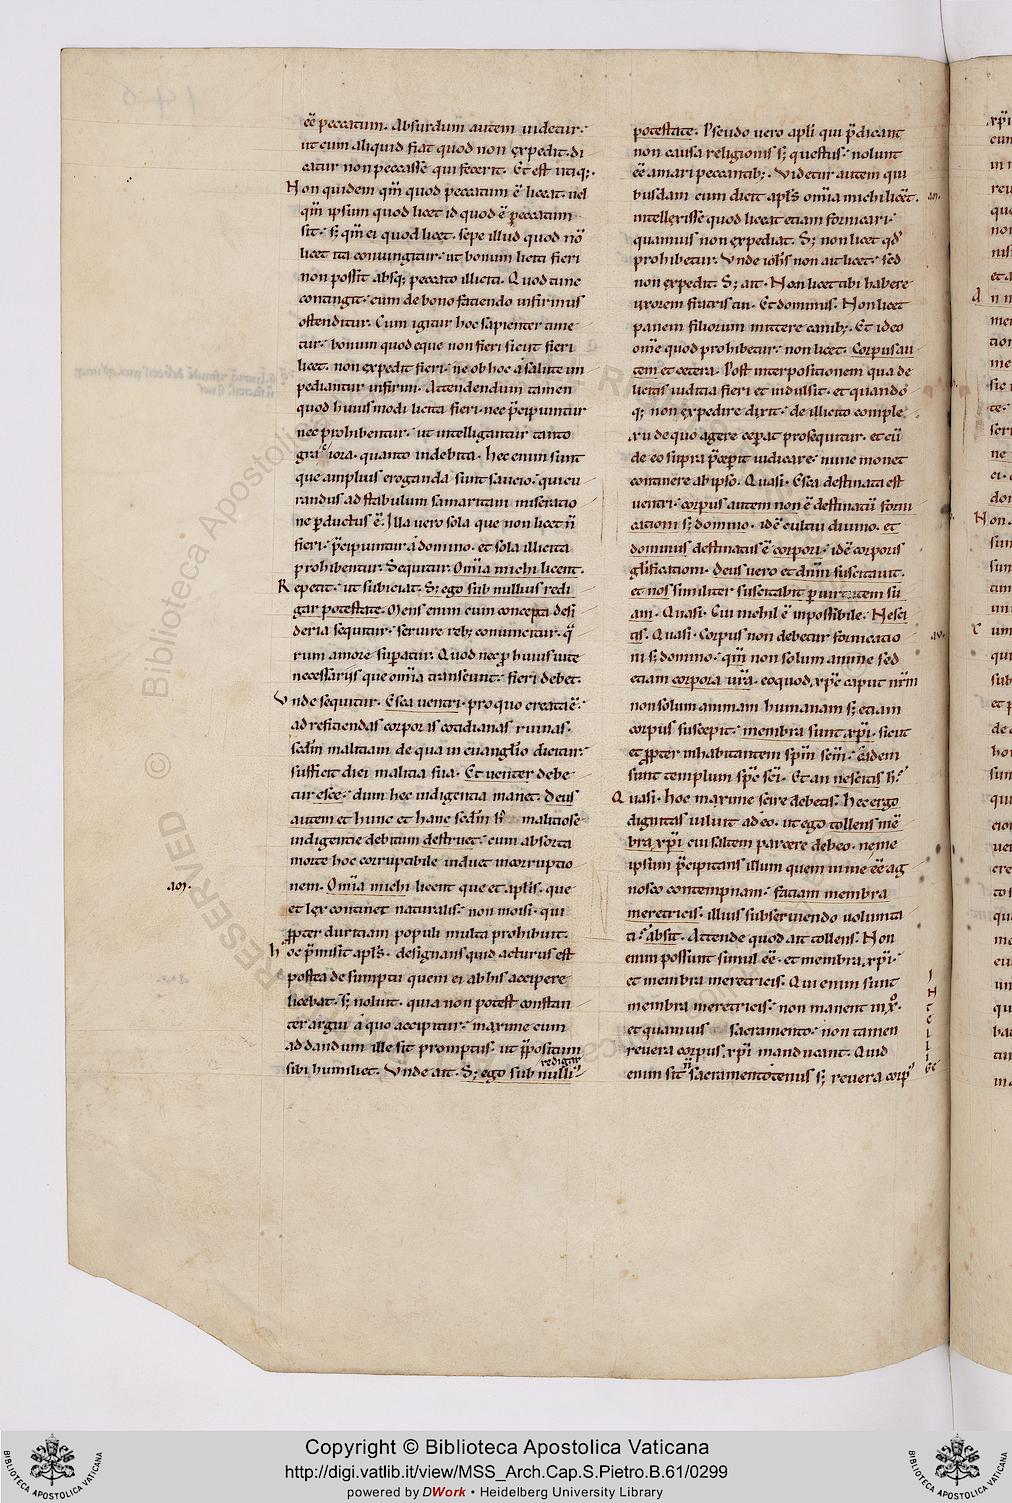 eē peccatum. Absurdum autem uidetur.
ut cum aliquid fiat quod non expedit. di
catur non peccasse qui fecerit. Et est utiq;.
Non quidem qm̄ quod peccatum ē liceat. uel
qm̄ ipsum quod licet id quod ē peccatum
sit. s; qm̄ ei quod licet. sepe illud quod nō
licet ita coniungitur. ut bonum licita fieri
non possit absq; peccato illicita. Quod tunc
contingit. cum de bono faciendo infirmus
offenditur. Cum igitur hoc sapienter time
tur. bonum quod eque non fieri sicut fieri
licet. non expedit fieri. ne ob hoc a salute im
pediantur infirmi. Attendendum tamen
quod huius modi licita fieri. nec p̄cipiuntur
nec prohibentur. ut intelligantur tanto
gratiora. quanto indebita. hec enim sunt
que amplius eroganda sunt saucio. qui cu
randus ad stabulum samaritani miseratio
ne pductus ē. Illa uero sola que non licet n̄
fieri. p̄cipiuntur a domino. et sola illicita
prohibentur. Sequitur. Om̄ia michi licent.
Repetit. ut subiciat. S; ego sub nullius redi
gar potestate. Mens enim cum concepta desi
deria sequitur. seruire reb; conuincitur. q̄
rum amore supatur. Quod nec p huius uite
necessariis que om̄ia transeunt. fieri debet.
Vnde sequitur. Esca uentri. pro quo creata ē.
ad reficiendas corporis cotidianas ruinas.
scdm malitiam de qua in euanglio dicitur.
sufficit diei malitia sua. Et uenter debe
tur esce. dum hec indigentia manet. Deus
autem et hunc et hanc scdm h̄ malitiose
indigentie debitum destruet. cum absorta
morte hoc corruptibile induet incorruptio
nem. Om̄ia michi licent que et apl̄is. que
et lex continet naturalis. non moisi. qui
ppter duritiam populi multa prohibuit.
hoc p̄misit apl̄s. designans quid acturus est
postea de sumptu quem ei ab his accipere
licebat. s; noluit. quia non potest constan
ter argui a quo accipitur. maxime cum
ad dandum ille sit promptus. ut ppositum
redigar
sibi humiliet. Vnde ait. S; ego sub nulli᾿
aɱ.
potestate. Pseudo uero apl̄i qui p̄dicant
non causa religionis s; questus. nolunt
eē amari peccantib;. Videtur autem qui
busdam cum dicit apl̄s om̄ia michi licēt.
intellexisse quod liceat etiam fornicari.
quamuis non expediat. S; non licet qđ
prohibetur. Vnde ioħis non ait licet. sed
non expedit. S; ait. Non licet tibi habere
uxorem fratris tui. Et dominus. Non licet
panem filiorum mittere canib;. Et ideo
om̄e quod prohibetur. non licet. Corpus au
tem et cetera. Post interpositionem qua de
licitis iudicia fieri et indulsit. et quando
q; non expedire dixit. de illicito comple
xu de quo agere ceperat prosequitur. et cū
de eo supra p̄ceperit iudicare. nunc monet
continere ab ipso. Quasi. Esca destinata est
uentri. corpus autem non ē destinatū forni
cationi s; domino. idē cultui diuino. et
dominus destinatus ē corpori. idē corporis
gl̄ificationi. deus uero et dn̄m suscitauit.
et nos similiter suscitabit p uirtutem su
am. Quasi. Cui nichil ē inpossibile. Nesci
tis. Quasi. Corpus non debetur fornicatio
ni s; domino. qm̄ non solum anime sed
etiam corpora ur̄a. eo quod xp̄c caput nr̄m
non solum animam humanam s; etiam
corpus suscepit. membra sunt xp̄i. sicut
et ppter inhabitantem sp̄m scm̄. eidem
sunt templum sp̄c sci. Et an nescitis h̄.
Quasi. hoc maxime scire debetis. hec ergo
dignitas uiluit adeo. ut ego tollens mē
bra xp̄i cui saltem parcere debeo. ne me
ipsum p̄cipitans illum quem in me eē ag
nosco contempnam. faciam membra
meretricis. illius subseruiendo uolunta
ti. absit. Attende quod ait tollens. Non
enim possunt simul eē. et membra xp̄i.
et membra meretricis. Qui enim sunt
membra meretricis. non manent in xp̄o.
et quamuis sacramento. non tamen
reuera corpus xp̄i manducant. Quid
enim sit n̄ sacramentotenus s; reuera corp᾿
Copyright © Biblioteca Apostolica Vaticana
http://digi.vatlib.it/view/MSS_Arch.Cap.S.Pietro.B.61/0299
powered by DWork • Heidelberg University Library